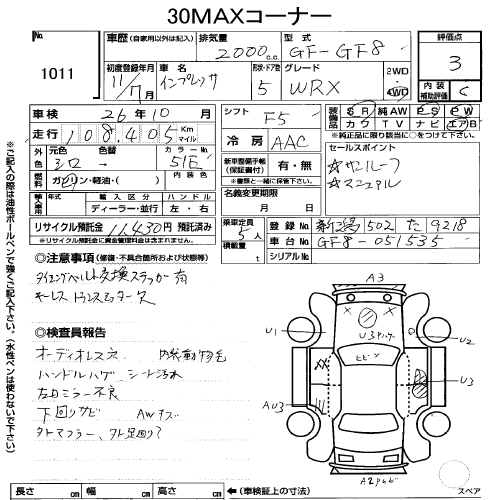 30MAXコーナー
No.
1011
車歴 (自家用以外は記入)
排気量 2000 c.c.
型式 GF-GF8
評価点 3
初度登録年月 11/7月
車名 インプレッサ
形状・ドア数 5
グレード WRX
2WD
4WD
内装補助評価 C
車検 26年10月
シフト F5
装備品 SR 純AW PS PW
カワ TV ナビ エアB
※純正品に限り該当に○をつけて下さい。
走行 108,405 Km マイル
冷房 AAC
セールスポイント
☆サンルーフ
☆マニュアル
外色 元色 シロ 色替 カラーNo. 51E
新車整備手帳(保証書付) 有・無
※書類と一緒に保管して下さい。
燃料 ガソリン・軽油・( )
輸入車用 輸入区分 ハンドル
ディーラー・並行 左・右
名義変更期限 月 日
リサイクル預託金 11430円 預託済み
※リサイクル預託金に資金管理料金は含まれません。
乗車定員 5人
積載量 t
登録No. 新潟 502 た 9218
車台No. GF8-051535
シリアルNo.
◎注意事項 (修復・不具合箇所および状態等)
タイミングベルト交換ステッカー有
キーレストランスミッター欠
◎検査員報告
オーディオレス 内装動物毛
ハンドルハゲ シート汚れ
左ドアミラー不良
下回りサビ AWキズ
外マフラー、外足回り?
A3
U1
U3アンテナ
U2
ヒビン
AU3
U3
スペア
長さ cm 幅 cm 高さ cm ←(車検証上の寸法)
※ご記入の際は油性ボールペンで強くご記入下さい。(水性ペンは使わないで下さい)